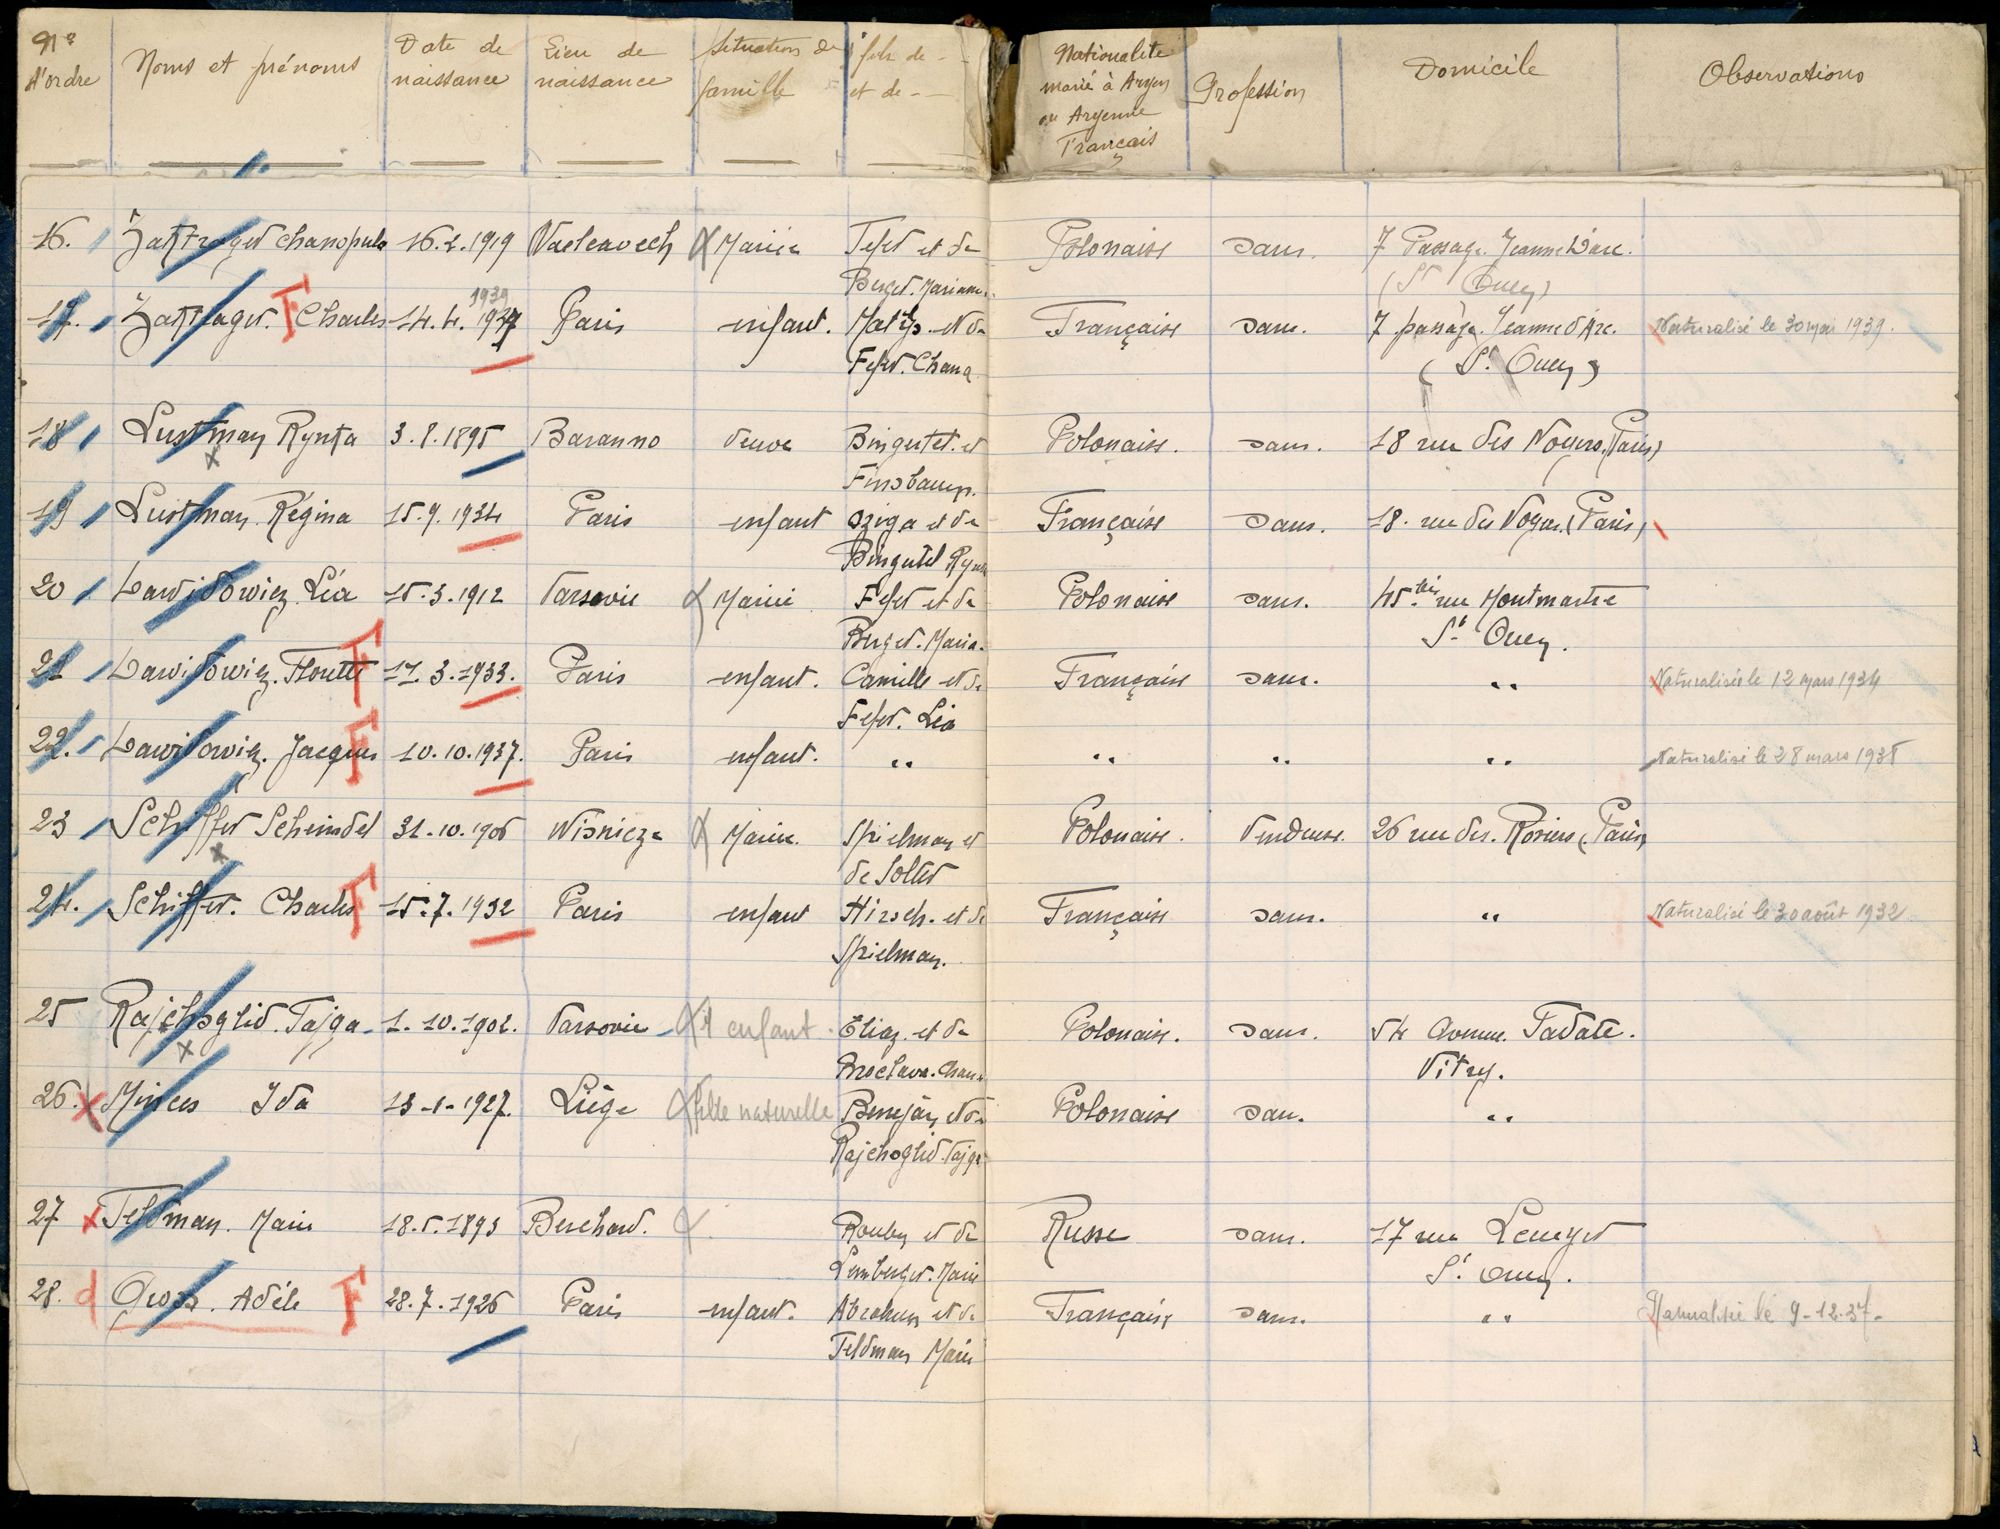 N° d'ordre
Noms et prénoms
Date de naissance
Lieu de naissance
Situation de famille
fils de - et de -
Nationalité marié à Aryen ou Aryenne Français
Profession
Domicile
Observations
16. Zajtzager 16.2.1919 Mariée Fefer et de Polonaise sans. 7 Passage Jeanne d'Arc.
Berger. Mariam. (St Ouen)
17. Zajtzager. F Charles 14.4.1937 1939 Paris enfant. et de Française sans. 7 passage Jeanne d'Arc. Naturalisé le 30 mai 1939.
Fefer. Chana (St. Ouen)
18 Lustman Rynta 3.8.1895 Baranno veuve Bingutel. et Polonaise. sans. 18 rue des Noyers. (Paris)
19 Lustman. Régina 15.9.1934 Paris enfant Sziga et de Française sans. 18. rue des Noyers. (Paris)
Bingutel
20 Dawidowiez Léa 15.3.1912 Varsovie Mariée Fefer et de Polonaise sans. 45 bis rue Montmartre
Berger. Maria. St Ouen.
21 Dawidowiez. F 17.3.1933. Paris enfant. Camille et de Française sans. " Naturalisée le 12 mars 1934
Fefer. Léa
22. Dawidowiez. Jacques F 10.10.1937. Paris enfant. " " " " Naturalisé le 28 mars 1938
23 Schiffer Scheindel 31.10.1906 Wisnicze Mariée. Spielman et Polonaise. Vendeuse. 26 rue des. Rosiers (Paris)
de Solter
24. Schiffer. Charles F 15.7.1932 Paris enfant Hirsch. et de Française sans. " Naturalisé le 30 août 1932
Spielman.
25 Rajchoglid. Tajga 1.10.1902. Varsovie 1 enfant. Eliaz. et de Polonaise. sans. 54 Avenue.
Vitry.
26. Minces Ida 13-1-1927. Liège fille naturelle et de Polonaise sans. "
Rajchoglid. Tajga
27 Feldman. Marie 18.5.1893 Rouben et de Russe sans. 17 rue
Lemberger. Marie St. Ouen.
28. d Gross. Adèle F 28.7.1926 Paris enfant. Abraham et de Française sans. " Naturalisée le 9-12-37-
Feldman Marie